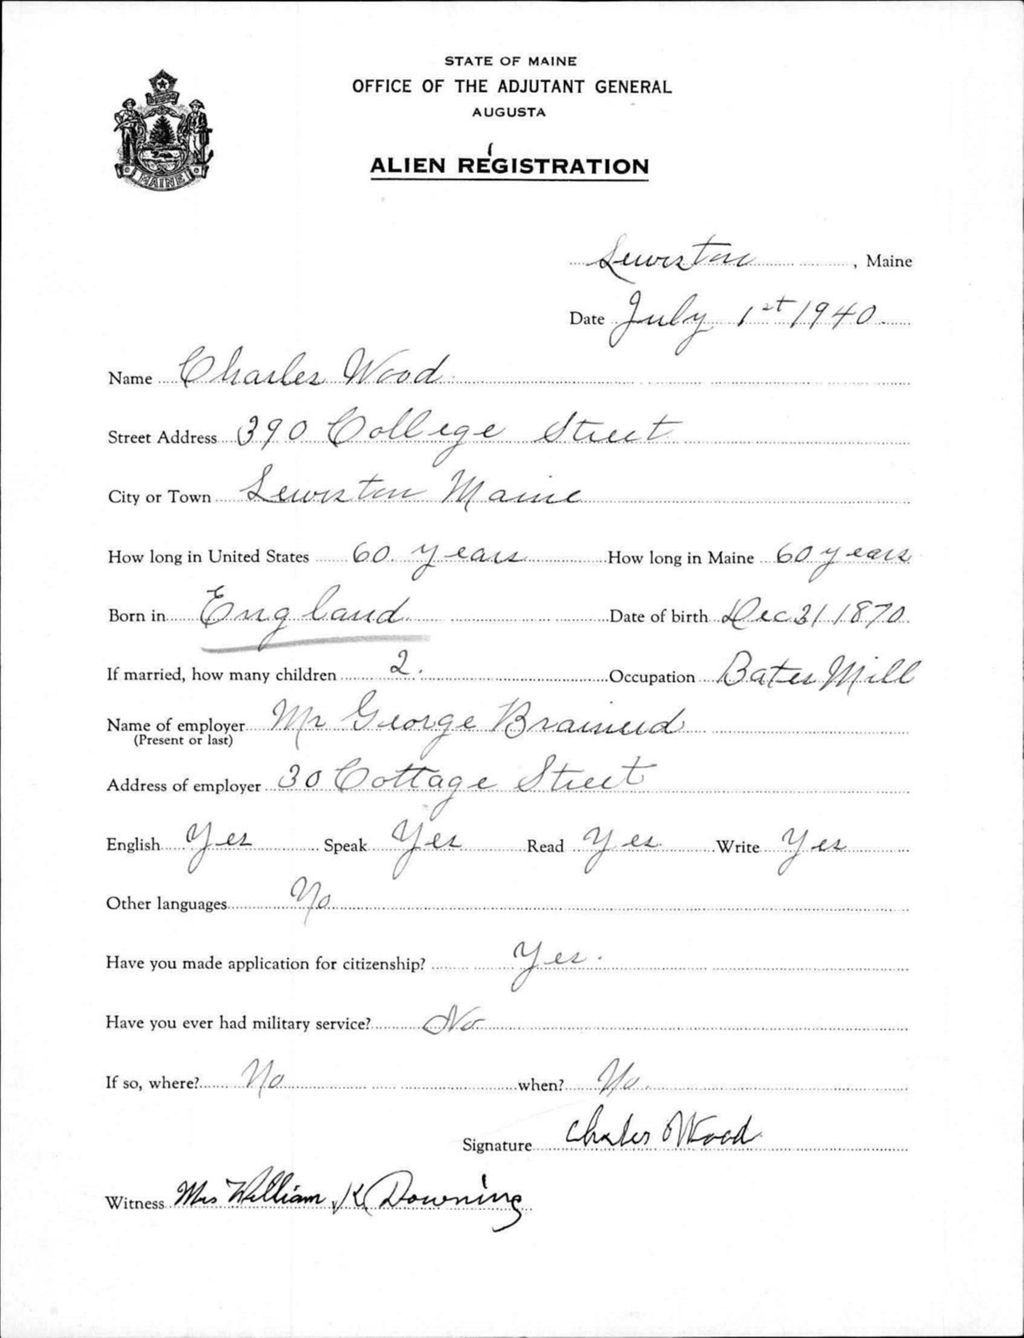 STATE OF MAINE
OFFICE OF THE ADJUTANT GENERAL
AUGUSTA
ALIEN REGISTRATION
MAINE
Lewiston, Maine
Date July 1st 1940
Name Charles Wood
Street Address 390 College Street
City or Town Lewiston Maine
How long in United States 60 years How long in Maine 60 years
Born in England Date of birth Dec 31 1870
If married, how many children 2. Occupation Bates Mill
Name of employer Mr George Brainerd
(Present or last)
Address of employer 30 Cottage Street
English Yes Speak Yes Read Yes Write Yes
Other languages No
Have you made application for citizenship? Yes.
Have you ever had military service? No
If so, where? No when? No.
Signature Charles Wood
Witness Mrs William K Downing